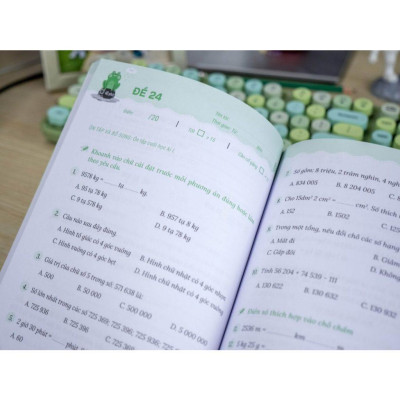 ĐỀ 24
Điểm /20
Khoanh vào chữ cái đặt trước mỗi phương án đúng hoặc làm
theo yêu cầu.
1. 9578 kg = ...... tạ ...... kg.
A. 95 tạ 78 kg
B. 957 tạ 8 kg
C. 9 tạ 578 kg
D. 9 tạ 78 kg
2. Câu nào sau đây đúng.
A. Hình tứ giác có 4 góc vuông
B. Hình chữ nhật có 4 góc nhọn.
C. Hình vuông có 4 góc bẹt
D. Hình chữ nhật có 4 góc vuông.
3. Giá trị của chữ số 5 trong số: 571 638 là:
A. 500
B. 50 000
C. 500 000
D. 5 000 000
4. Số lớn nhất trong các số 725 369; 725 396; 725 936; 725
A. 725 936
B. 725 396
C. 725 369
5. 2 giờ 30 phút = ...... phút
A. 60
Số gồm: 8 triệu, 2 trăm nghìn, 4
A. 834 005
B. 8 204 005
Cho 15dm² 2cm² = ...... cm². Số thích
A. 152
B. 1502
C. 125
Trong một tổng, nếu đổi chỗ các số hạng
A. Mất đi
B. Giảm
C. Gấp đôi
D. Không
Tính 56 204 + 74 539 - 111
A. 130 622
B. 130 632
C. 130 932
Điền số thích hợp vào chỗ chấm
km
1 kg 25 g =